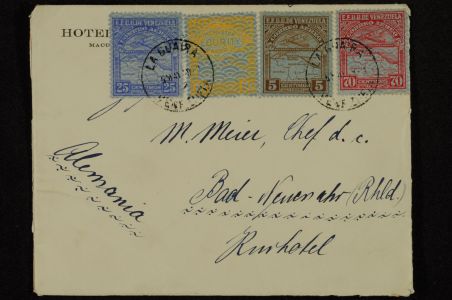 HOTEL
MACU
E.E.U.U. DE VENEZUELA
CORREO AEREO
25 CENTIMOS 25
E.E.U.U. DE VENEZUELA
5 CENTIMOS 5
E.E.U.U. DE VENEZUELA
70 CENTIMOS 70
LA GUAIRA
LA GUAIRA
M. Meier, Chef d. c.
Alemania
Bad-Neuenahr (Rhld.)
Kurhotel